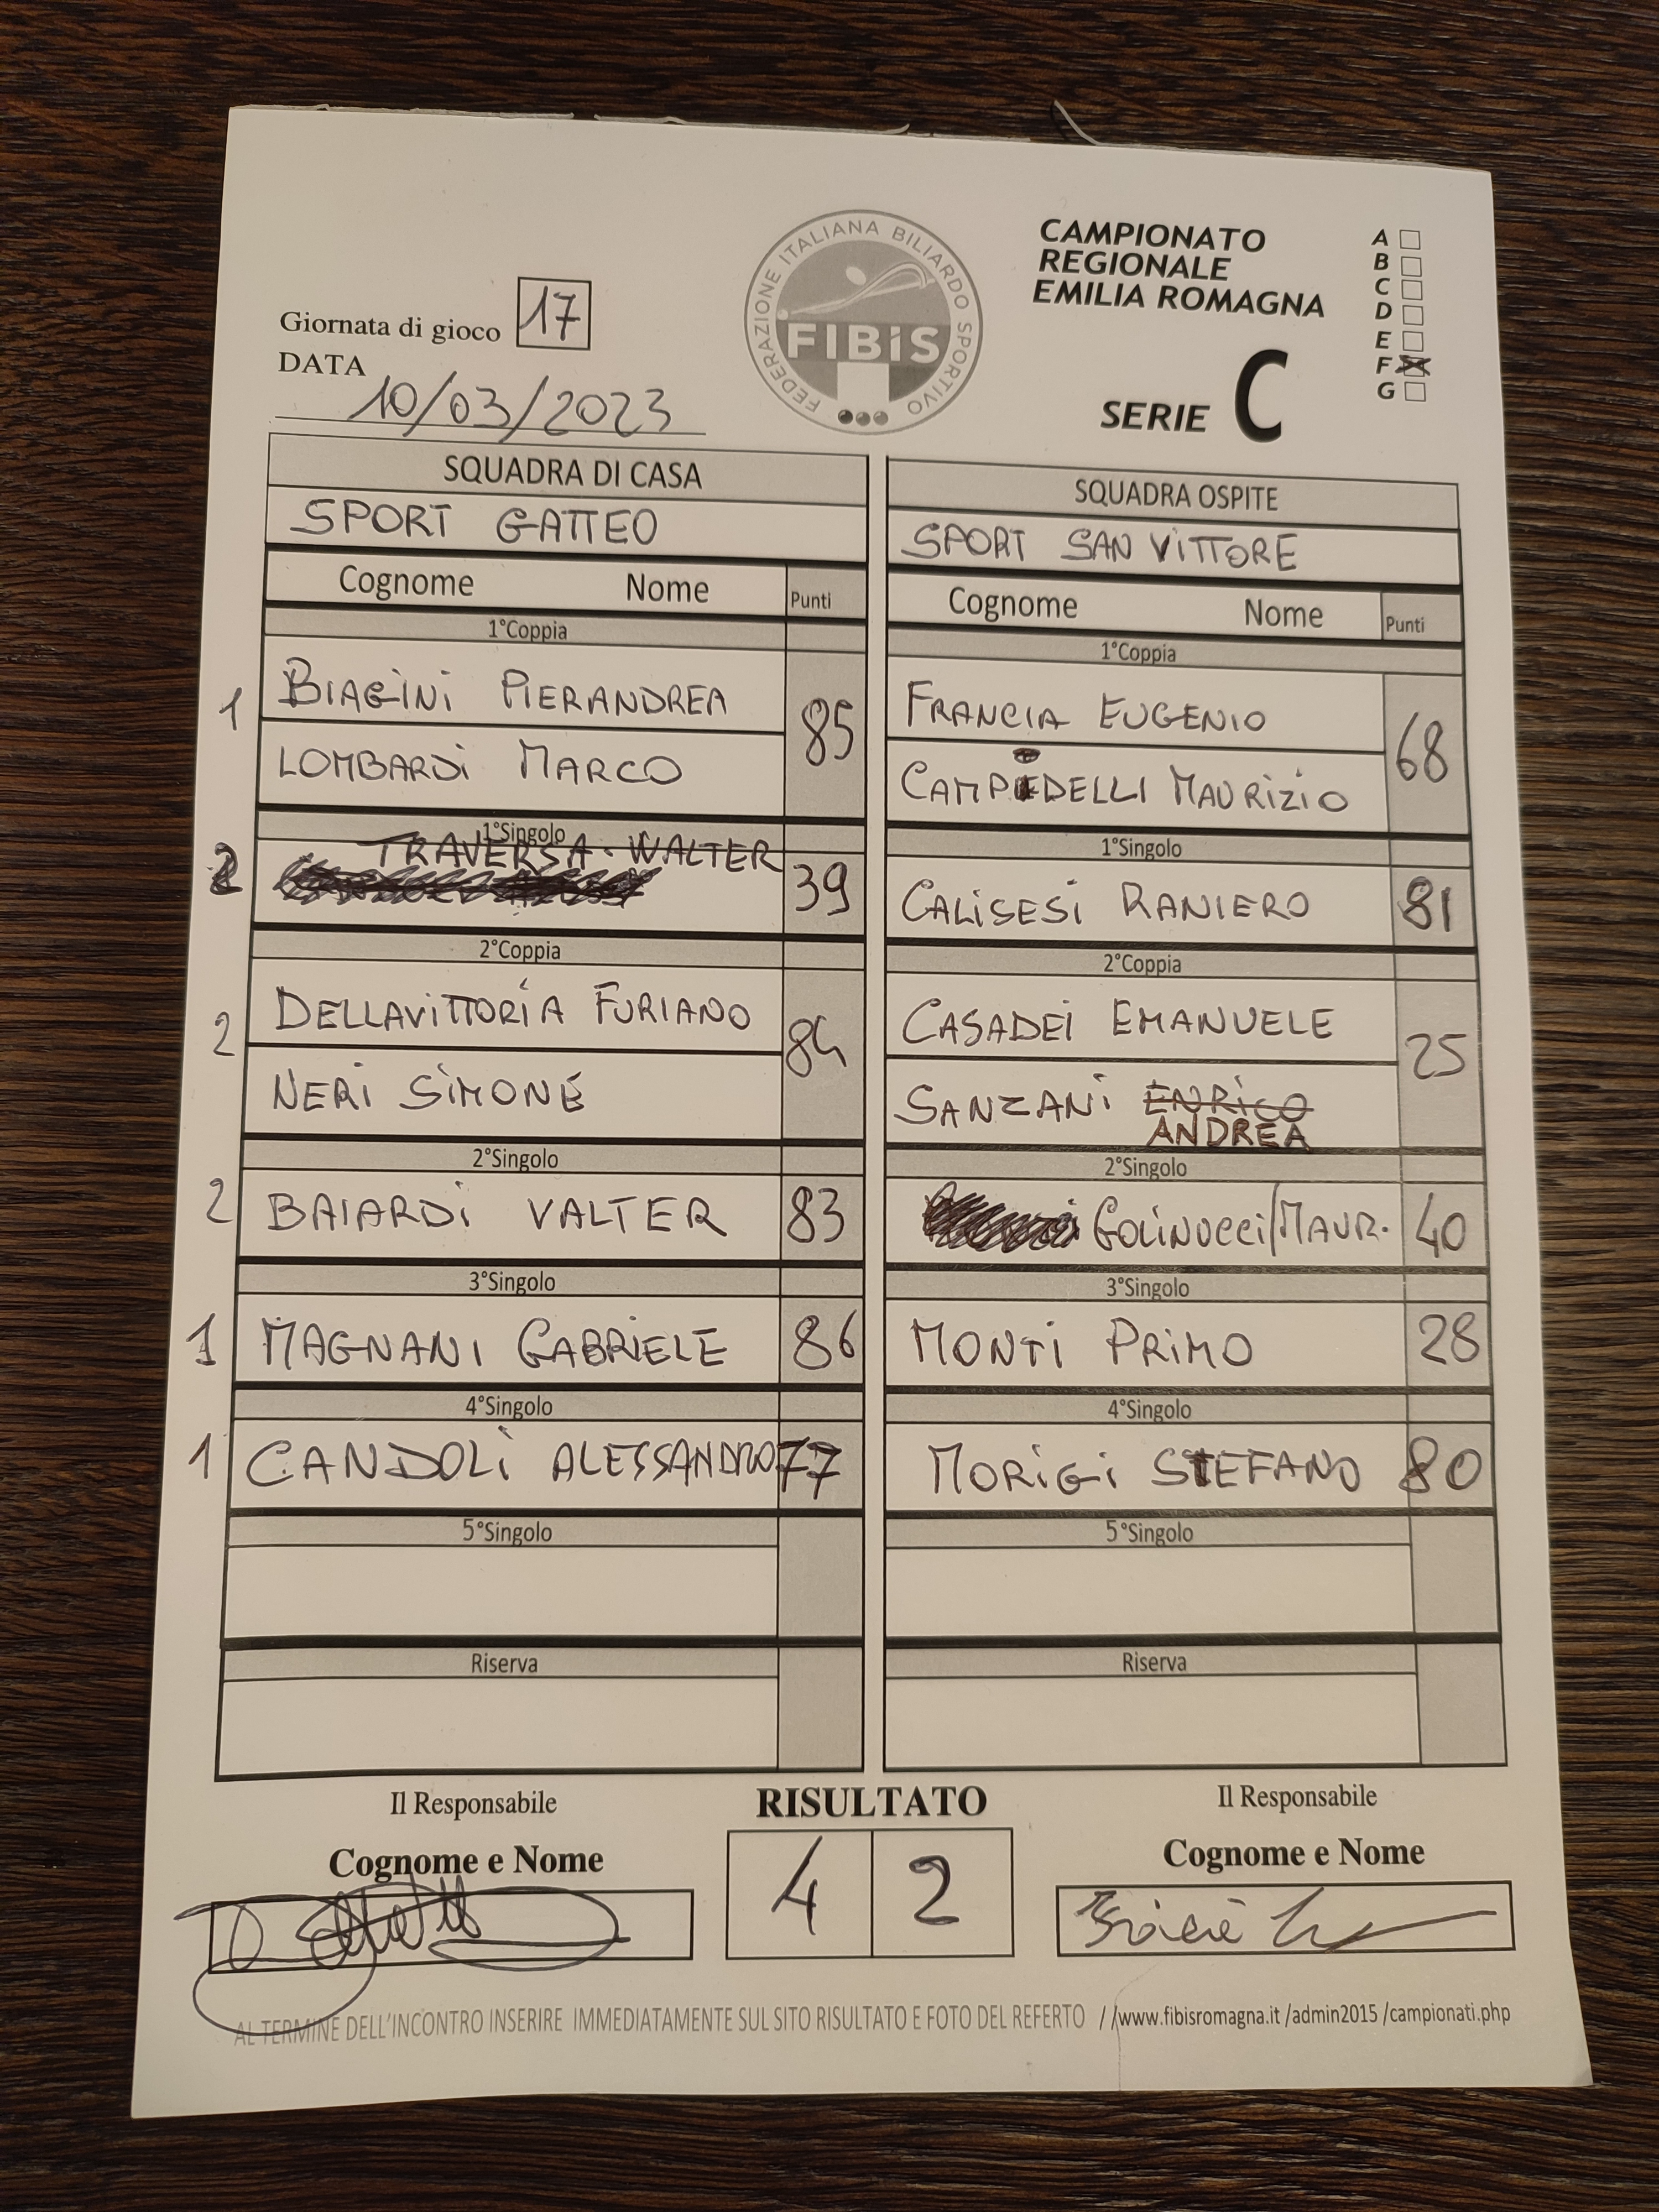 FEDERAZIONE ITALIANA BILIARDO SPORTIVO
FIBiS
CAMPIONATO
REGIONALE
EMILIA ROMAGNA
SERIE C
A
B
C
D
E
F
G
Giornata di gioco 17
DATA
10/03/2023
SQUADRA DI CASA
SPORT GATTEO
Cognome Nome Punti
1°Coppia
1 BIAGINI PIERANDREA 85
LOMBARDI MARCO
1°Singolo
2 TRAVERSA - WALTER 39
2°Coppia
2 DELLAVITTORIA FURIANO 84
NERI SIMONE
2°Singolo
2 BAIARDI VALTER 83
3°Singolo
1 MAGNANI GABRIELE 86
4°Singolo
1 CANDOLI ALESSANDRO 77
5°Singolo
Riserva
SQUADRA OSPITE
SPORT SAN VITTORE
Cognome Nome Punti
1°Coppia
FRANCIA EUGENIO 68
CAMPIDELLI MAURIZIO
1°Singolo
CALISESI RANIERO 81
2°Coppia
CASADEI EMANUELE 25
SANZANI ENRICO
ANDREA
2°Singolo
GOLINUCCI/MAUR. 40
3°Singolo
MONTI PRIMO 28
4°Singolo
MORIGI STEFANO 80
5°Singolo
Riserva
Il Responsabile
Cognome e Nome
RISULTATO
4 2
Il Responsabile
Cognome e Nome
AL TERMINE DELL'INCONTRO INSERIRE IMMEDIATAMENTE SUL SITO RISULTATO E FOTO DEL REFERTO //www.fibisromagna.it /admin2015 /campionati.php